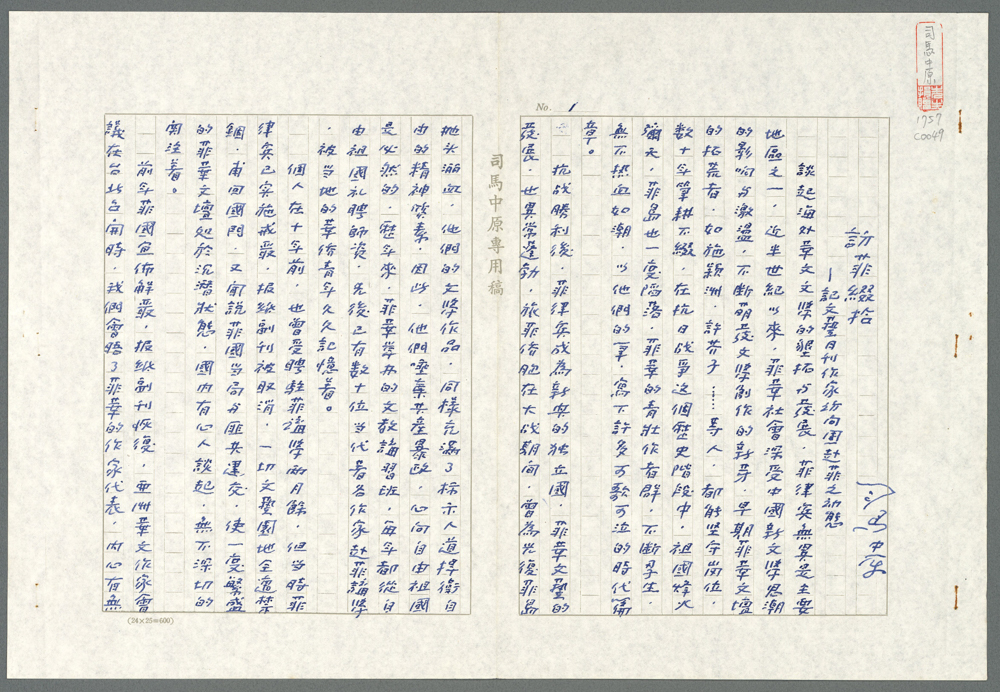 司馬中原
1757
C0049
No. 1
訪菲綴拾
—記文藝月刊作家訪問團赴菲之初態
司馬中原
談起海外華文文學的墾拓与發展，菲律賓無異是主要
地區之一，近半世紀以來，菲華社會深受中國新文學思潮
的影响与激盪，不斷萌發文學創作的新芽，早期菲華文壇
的拓荒者，如施穎洲，許芥子……等人，都能坚守崗位，
数十年筆耕不綴，在抗日战爭这個歷史階段中，祖國烽火
瀰天，菲島也一度陷落，菲華的青壯作者群，不斷孳生，
無不热血如潮，以他們的筆，寫下許多可歌可泣的時代篇
章。
抗战勝利後，菲律宾成為新興的独立國，菲華文藝的
發展，也異常蓬勃，旅菲侨胞在大战期间，曾為光復菲島
司馬中原專用稿
抛头洒血，他們的文學作品，同樣充滿了标示人道捍衛自
由的精神質素，因此，他們唾棄共產暴政，心向自由祖國
是必然的，歷年來，菲華學舟的文教講習班，每年都從自
由祖國礼聘師资，先後已有数十位当代著名作家赴菲講學
，被当地的華侨青年久久記憶着。
個人在十年前，也曾受聘駐菲講學兩月餘，但当時菲
律宾已实施戒嚴，报紙副刊被取消，一切文藝園地全遭禁
錮，甫回國門，又闻說菲國当局与匪共建交，使一度繁盛
的菲華文壇处於沉潛狀態，國内有心人談起，無不深切的
関注着。
前年菲國宣佈解嚴，报紙副刊恢復，亞洲華文作家會
議在台北召開時，我們會晤了菲華的作家代表，内心有無
(24×25=600)